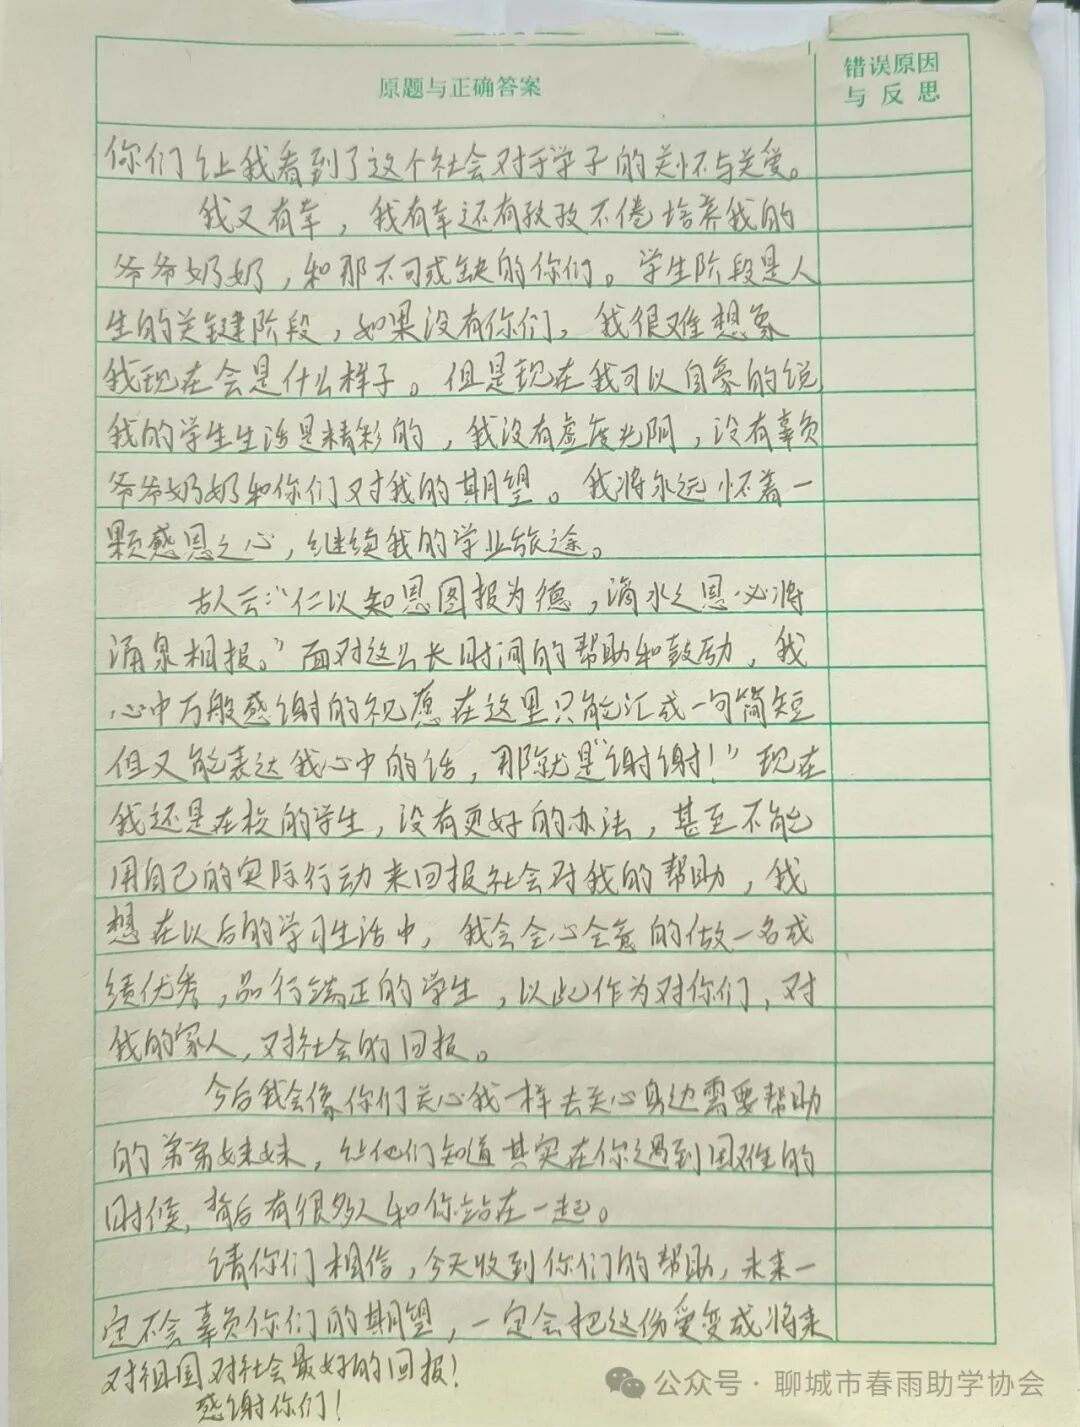 原题与正确答案
错误原因
与反思
你们让我看到了这个社会对于学子的关怀与关爱。
我又有幸，我有幸还有孜孜不倦培养我的
爷爷奶奶，和那不可或缺的你们。学生阶段是人
生的关键阶段，如果没有你们，我很难想象
我现在会是什么样子。但是现在我可以自豪的说
我的学生生活是精彩的，我没有虚度光阴，没有辜负
爷爷奶奶和你们对我的期望。我将永远怀着一
颗感恩之心，继续我的学业旅途。
古人云：“仁以知恩图报为德，滴水之恩必将
涌泉相报。”面对这么长时间的帮助和鼓励，我
心中万般感谢的祝愿在这里只能汇成一句简短
但又能表达我心中的话，那就是“谢谢！”现在
我还是在校的学生，没有更好的办法，甚至不能
用自己的实际行动来回报社会对我的帮助，我
想在以后的学习生活中，我会全心全意的做一名成
绩优秀，品行端正的学生，以此作为对你们，对
我的家人，对社会的回报。
今后我会像你们关心我一样去关心身边需要帮助
的弟弟妹妹，让他们知道其实在你遇到困难的
时候，背后有很多人和你站在一起。
请你们相信，今天收到你们的帮助，未来一
定不会辜负你们的期望，一定会把这份爱变成将来
对祖国对社会最好的回报！
感谢你们！
公众号·聊城市春雨助学协会